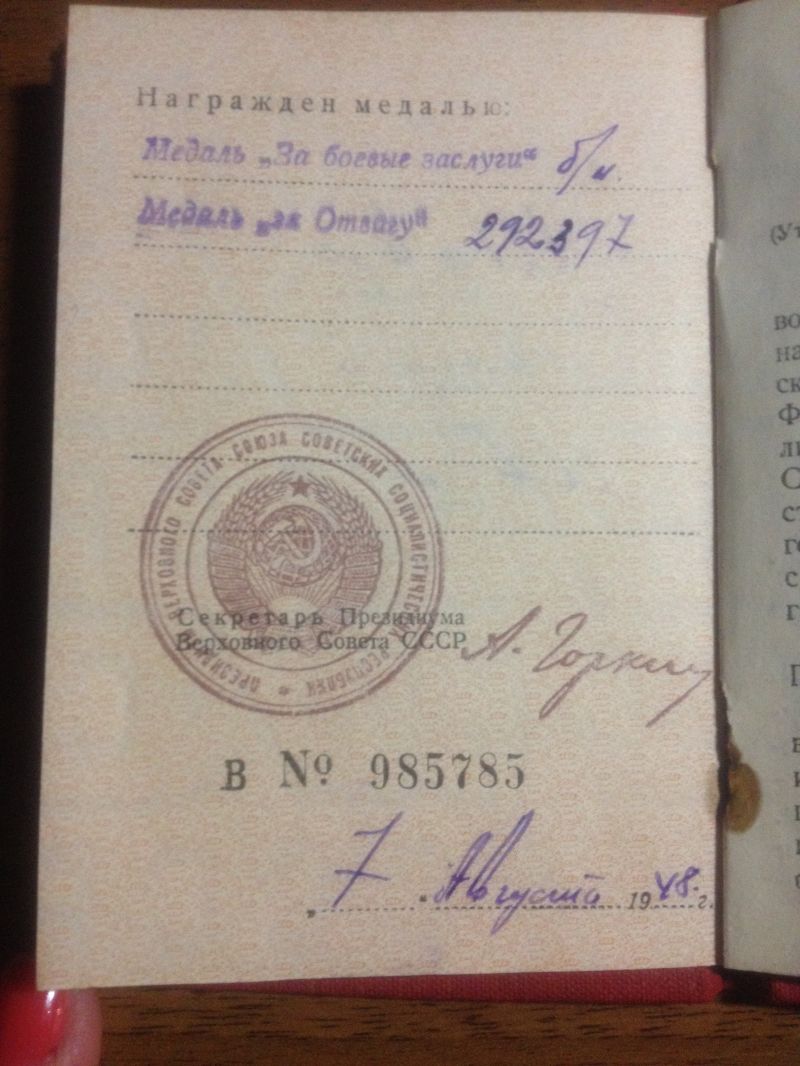 Награжден медалью:
Медаль „За боевые заслуги“ б/н.
Медаль „за Отвагу“ 292397
ПРЕЗИДИУМ ВЕРХОВНОГО СОВЕТА СОЮЗА СОВЕТСКИХ СОЦИАЛИСТИЧЕСКИХ РЕСПУБЛИК
Секретарь Президиума
Верховного Совета СССР А. Горкин
В № 985785
„7“ Августа 1948. г.
(Ут
во
на
ск
Ф
ли
С
ст
го
с
г